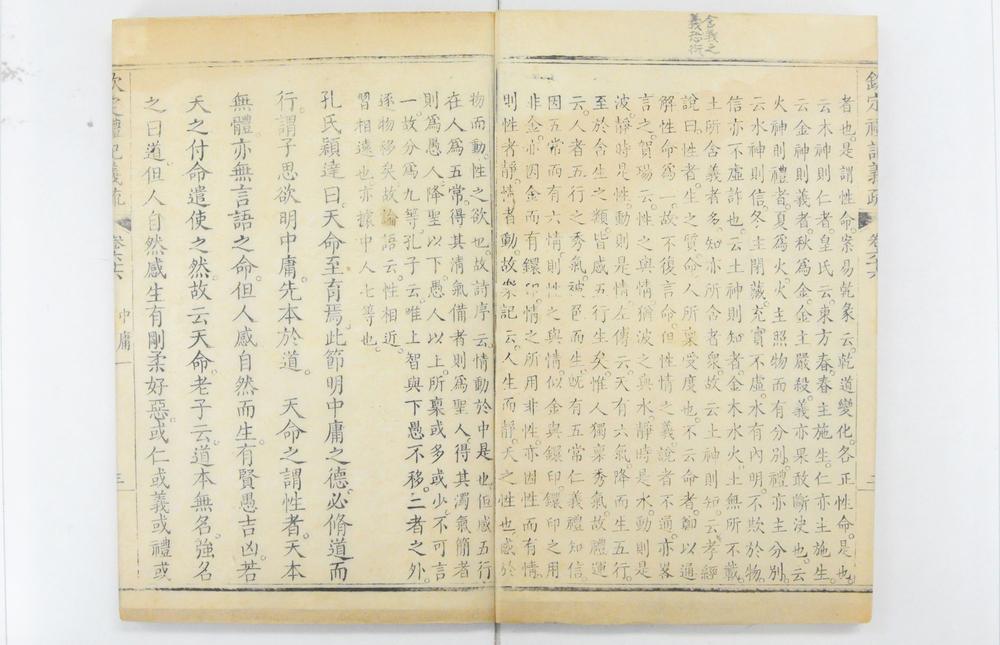 含義之
義恐衍
欽定禮記義疏 卷六十六
者也是謂性命案易乾彖云乾道變化各正性命是也
云木神則仁者皇氏云東方春春主施生仁亦主施生
云金神則義者秋爲金金主嚴殺義亦果敢斷決也云
火神則禮者夏爲火火主照物而有分別禮亦主分別
云水神則信冬主閉藏充實不虛水有內明不欺於物
信亦不虛詐也云土神則知者金木水火土無所不載
土所含義者多知亦所含者衆故云土神則知云孝經
說曰性者生之質命人所稟受度也不云命者鄭以通
解性命爲一故不復言命但性情之義說者不通亦畧
言之賀瑒云性之與情猶波之與水靜時是水動則是
波靜時是性動則是情左傳云天有六氣降而生五行
至於含生之類皆感五行生矣惟人獨稟秀氣故禮運
云人者五行之秀氣被色而生旣有五常仁義禮知信
因五常而有六情則性之與情似金與鐶印鐶印之用
非金亦因金而有鐶印情之所用非性亦因性而有情
則性者靜情者動故樂記云人生而靜天之性也感於
物而動性之欲也故詩序云情動於中是也但感五行
在人爲五常得其淸氣備者則爲聖人得其濁氣簡者
則爲愚人降聖以下愚人以上所稟或多或少不可言
一故分爲九等孔子云唯上智與下愚不移二者之外
逐物移矣故論語云性相近
習相遠也亦據中人七等也
孔氏穎達曰天命至育焉此節明中庸之德必脩道而
行謂子思欲明中庸先本於道 天命之謂性者天本
無體亦無言語之命但人感自然而生有賢愚吉凶若
天之付命遣使之然故云天命老子云道本無名強名
之曰道但人自然感生有剛柔好惡或仁或義或禮或
欽定禮記義疏 卷六十六 中庸一 三